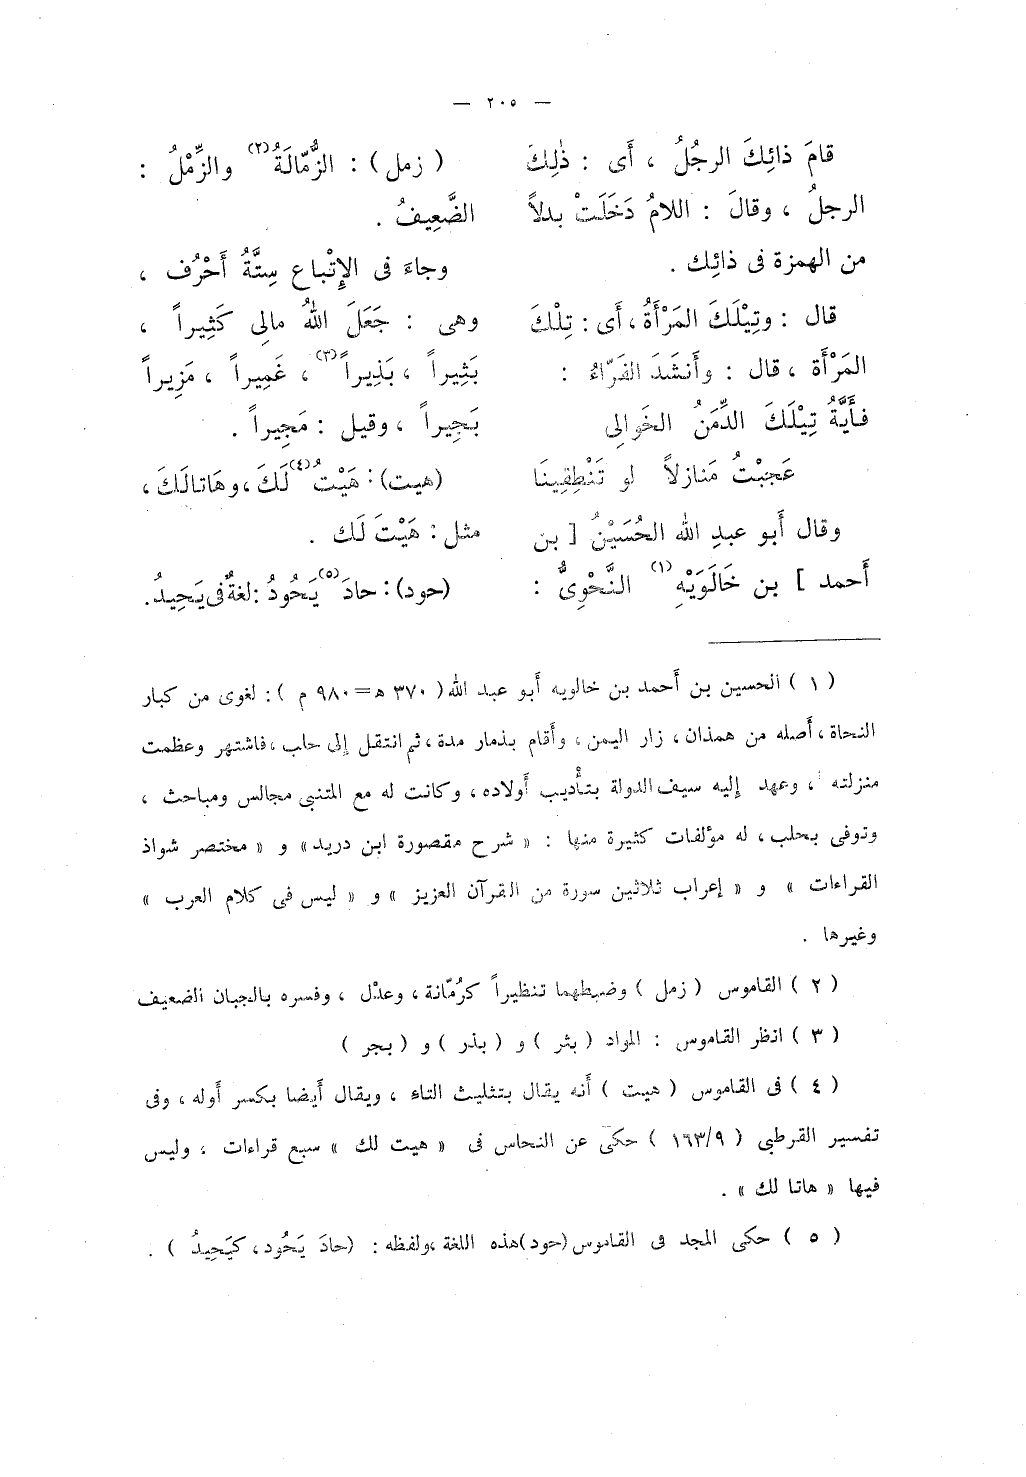 — ٢٠٥ —
قامَ ذائِكَ الرجُلُ ، أَى : ذٰلِكَ
الرجلُ ، وقالَ : اللامُ دَخَلَتْ بدلاً
من الهمزة فى ذائِك .
قال : وتِيْلَكَ المَرْأَةُ ، أَى : تِلْكَ
المَرْأَة ، قال : وأَنشَدَ الفَرّاءُ :
فأَيَّةُ تِيْلَكَ الدِّمَنُ الخَوالِى
عَجبْتُ مَنازلاً لو تَنْطِقِينَا
وقال أَبو عبدِ الله الحُسَيْنُ [ بن
أَحمد ] بن خَالَوَيْهِ (١) النَّحْوِىُّ :
( زمل ) : الزُّمّالَةُ (٢) والزِّمْلُ :
الضَّعِيفُ .
وجاءَ فى الإِتْباع سِتَّةُ أَحْرُف ،
وهى : جَعَلَ اللهُ مالِى كَثِيراً ،
بَثِيراً ، بَذِيراً (٣) ، غَمِيراً ، مَزِيراً
بَجِيراً ، وقيل : مَجِيراً .
(هيت) : هَيْتُ (٤) لَكَ ، وهَاتالَكَ ،
مثل : هَيْتَ لَك .
(حود) : حادَ (٥) يَحُودُ : لغةٌ فى يَحِيدُ.
( ١ ) الحسين بن أَحمد بن خالويه أَبو عبد الله ( ٣٧٠ ه = ٩٨٠ م ) : لغوى من كبار
النحاة ، أَصله من همذان ، زار اليمن ، وأَقام بذمار مدة ، ثم انتقل إلى حلب ، فاشتهر وعظمت
منزلته ، وعهد إليه سيف الدولة بتأْديب أَولاده ، وكانت له مع المتنبى مجالس ومباحث ،
وتوفى بحلب ، له مؤلفات كثيرة منها : « شرح مقصورة ابن دريد » و « مختصر شواذ
القراءات » و « إعراب ثلاثين سورة من القرآن العزيز » و « ليس فى كلام العرب »
وغيرها .
( ٢ ) القاموس ( زمل ) وضبطهما تنظيراً كرُمّانة ، وعدْل ، وفسره بالجبان الضعيف
( ٣ ) انظر القاموس : المواد ( بثر ) و ( بذر ) و ( بجر )
( ٤ ) فى القاموس ( هيت ) أَنه يقال بتثليث التاء ، ويقال أَيضا بكسر أوله ، وفى
تفسير القرطبى ( ١٦٣/٩ ) حكى عن النحاس فى « هيت لك » سبع قراءات ، وليس
فيها « هاتا لك » .
( ٥ ) حكى المجد فى القاموس (حود) هذه اللغة ، ولفظه : (حادَ يَحُود ، كيَحِيدُ ) .